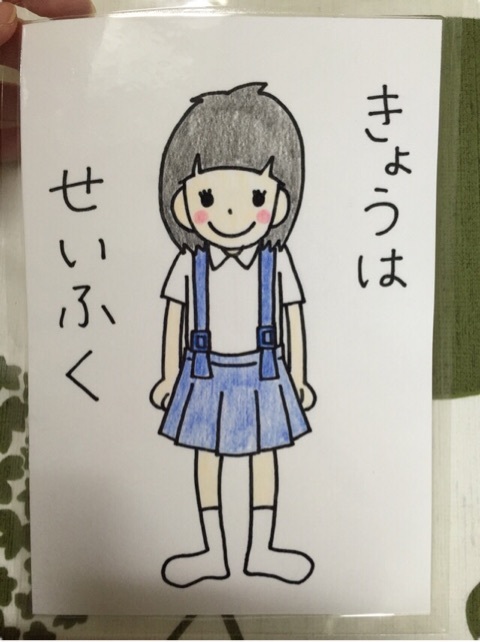 きょうは
せいふく